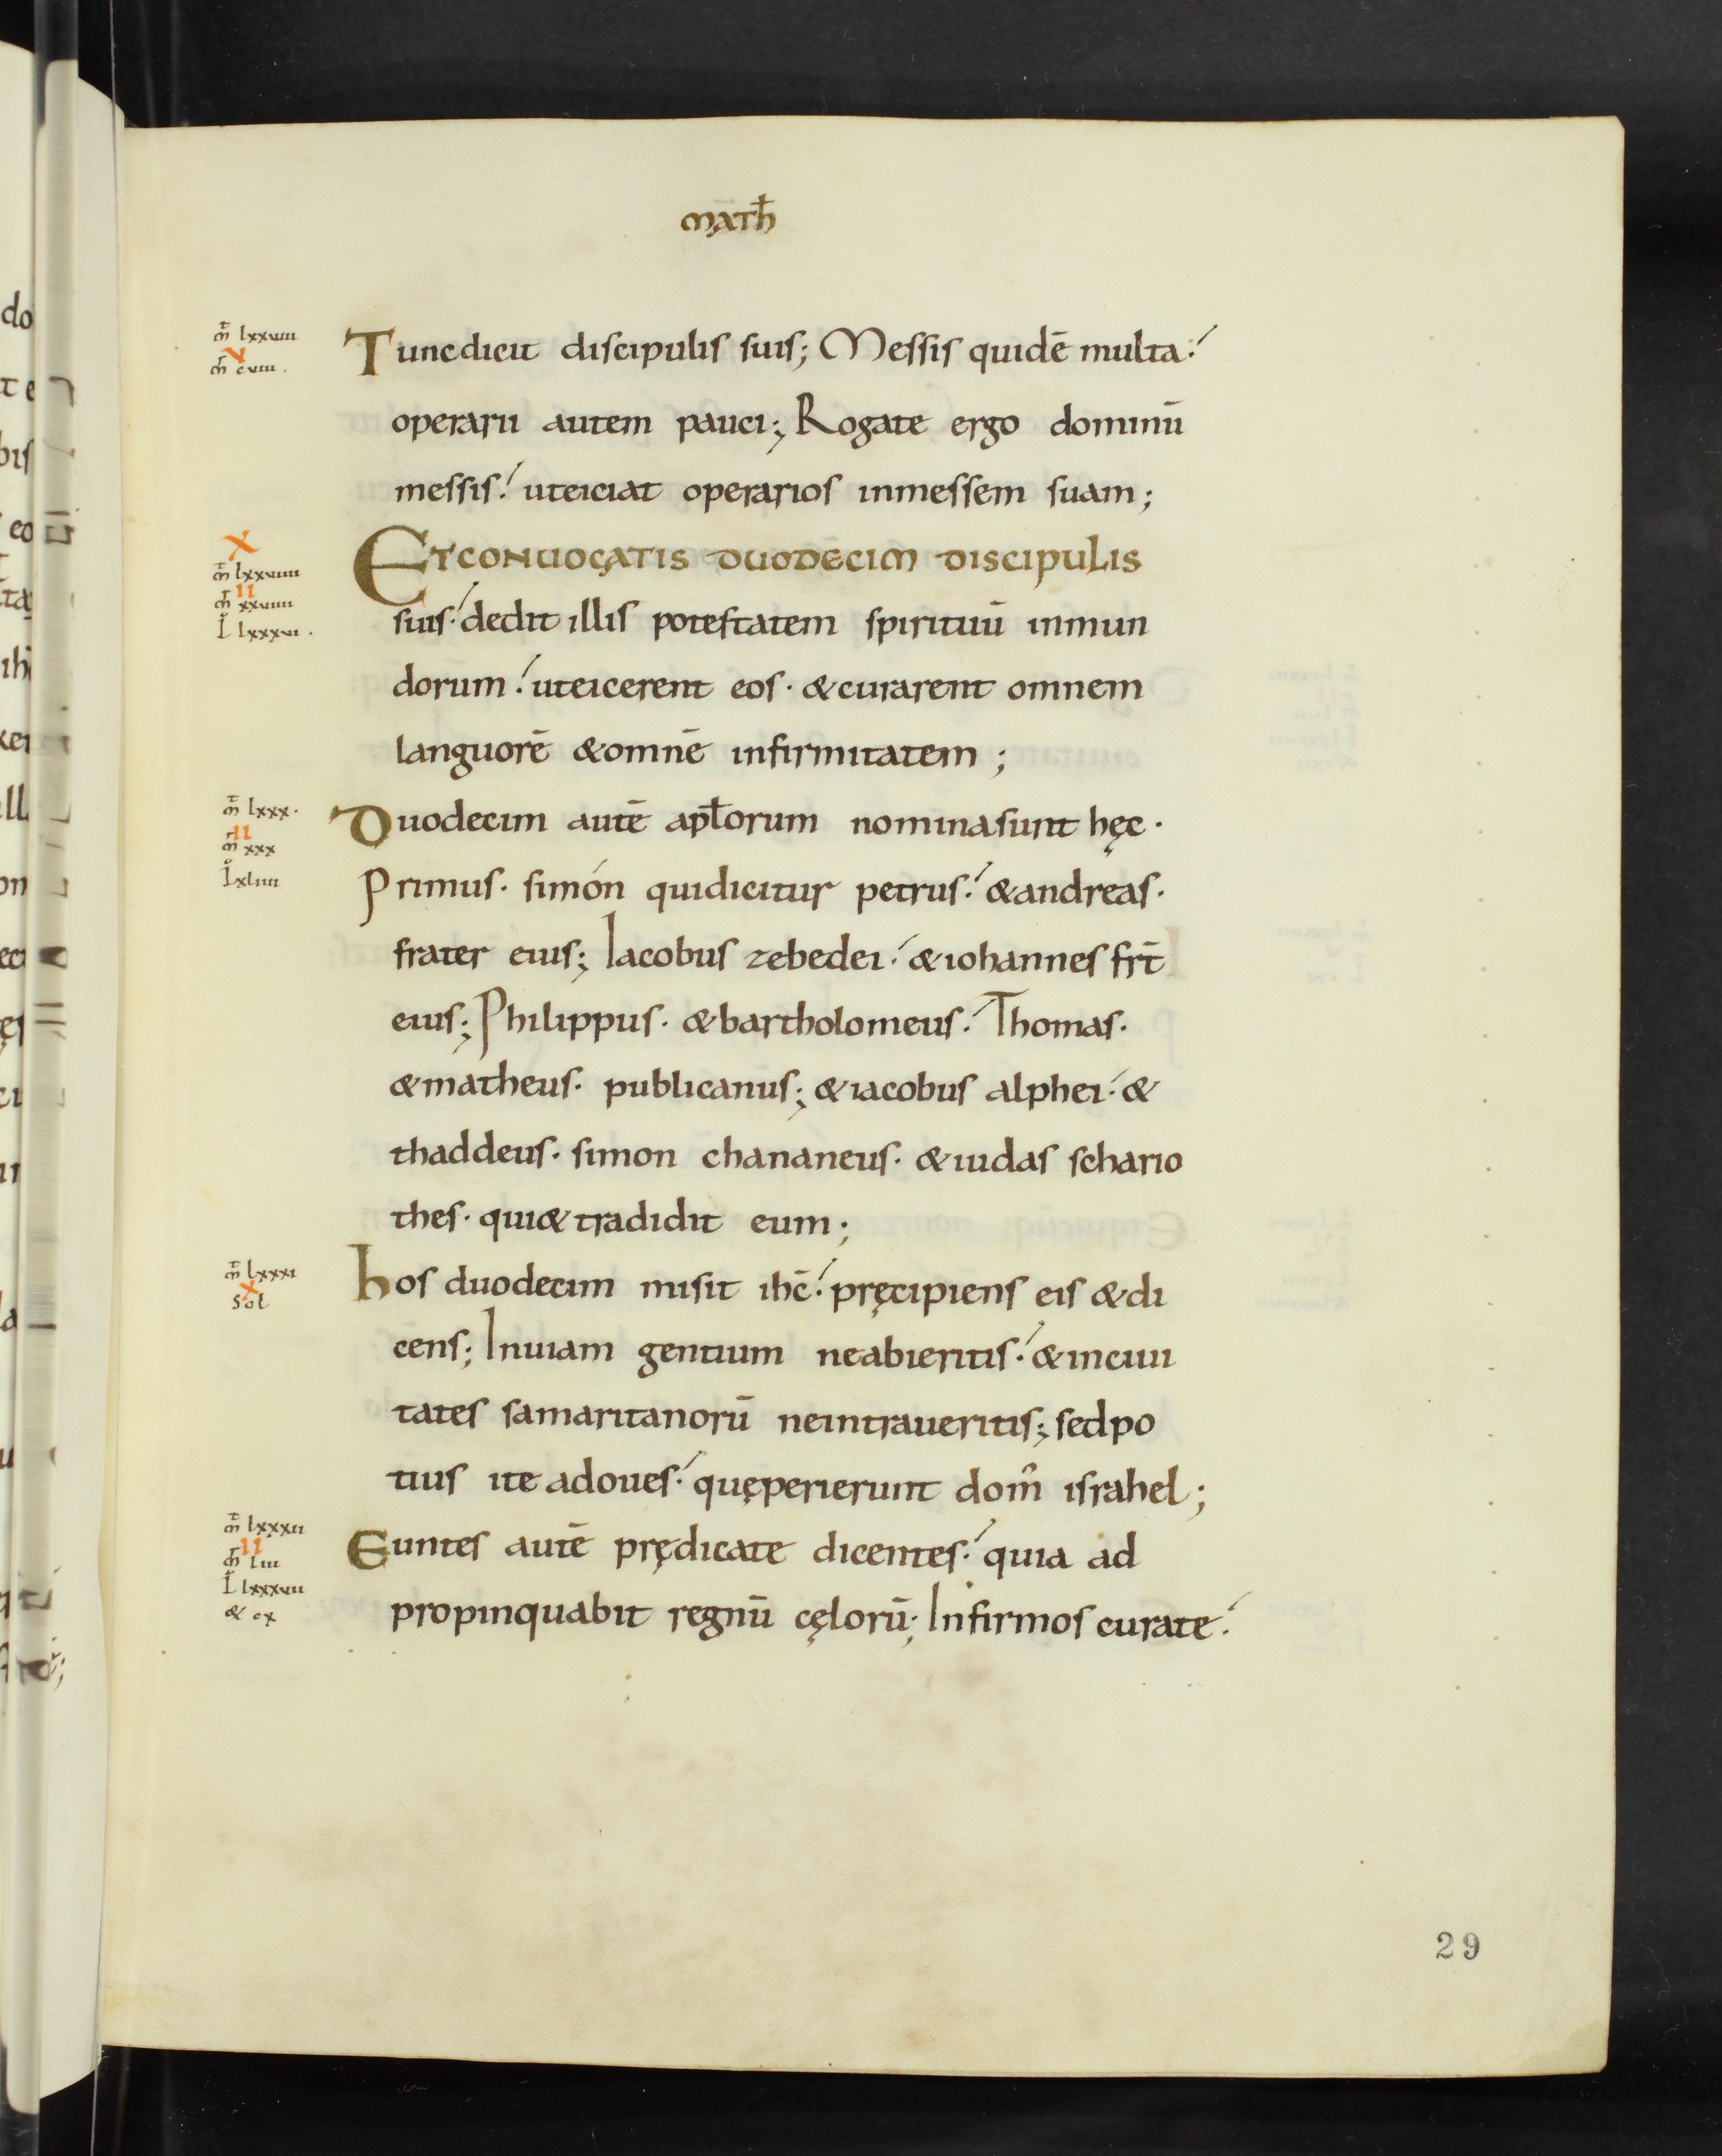 math̄
m̄ lxxviii
Tuncdicit discipulis suis; Messis quidē multa.
v
m̄ cviii.
operarii autem pauci; Rogate ergo dominū
messis. uteiciat operarios inmessem suam;
x
ETCONUOCATIS DUODECIM DISCIPULIS
m̄ lxxviiii
ii
m̄ xxviiii
l̊ lxxxvi.
suis. dedit illis potestatem spirituū inmun
dorum. uteicerent eos. &curarent omnem
languorē &omnē infirmitatem;
m̄ lxxx.
Duodecim autē apl̄orum nominasunt hęc.
ii
m̄ xxx
l̊ xliiii
Primus. simón quidicitur petrus. &andreas.
frater eius; Iacobus zebedei. &iohannes fr̄t
eius; Philippus. &bartholomeus. Thomas.
&matheus. publicanus; &iacobus alphei. &
thaddeus. simon chananeus. &iudas schario
thes. qui& tradidit eum;
m̄ lxxxi
x
sol
hos duodecim misit ihc̄. pręcipiens eis &di
cens; Inuiam gentium neabieritis. &inciui
tates samaritanorū neintraueritis; sedpo
tius ite adoues. quęperierunt dom̊ israhel;
m̄ lxxxii
ii
m̄ liii
l̊ lxxxvii
& cx
Euntes autē prędicate dicentes. quia ad
propinquabit regnū cęlorū; Infirmos curate.
29